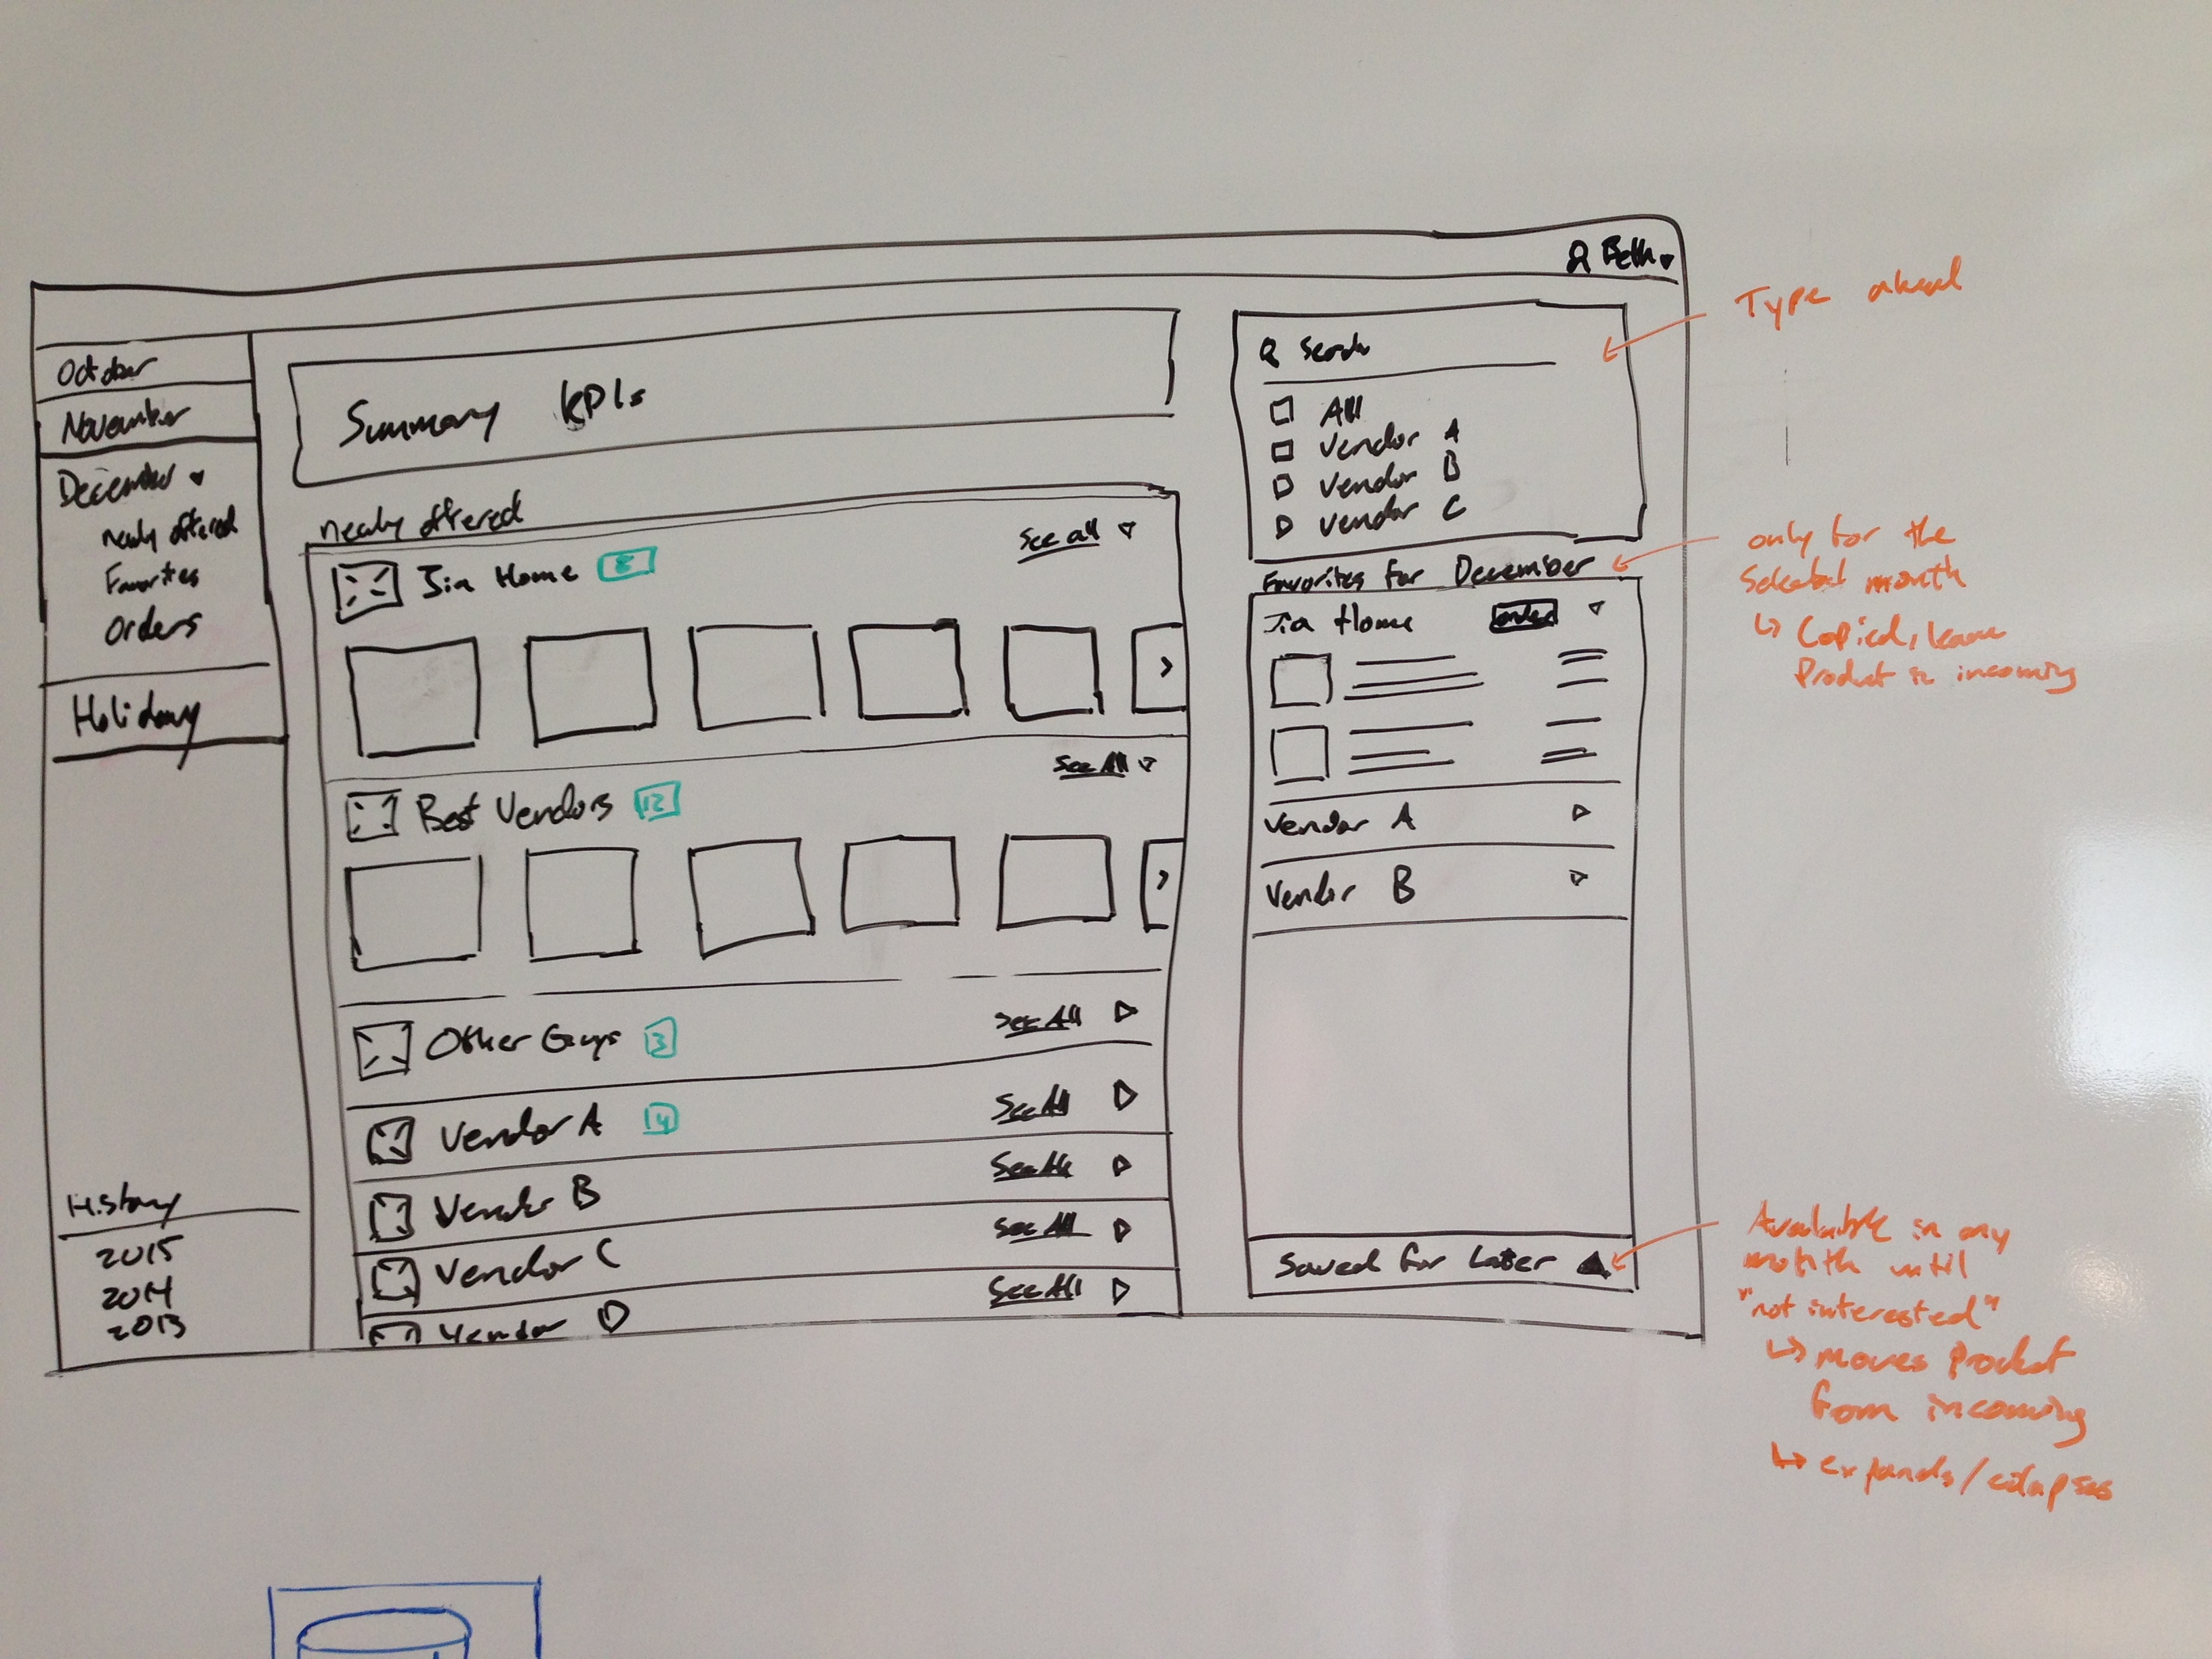 Beth
October
November
December
newly offered
Favorites
Orders
Holiday
History
2015
2014
2013
Summary KPIs
newly offered
Jia Home 8
See all
Best Vendors 12
See All
Other Guys 3
See All
Vendor A 14
See All
Vendor B
See All
Vendor C
See All
Vendor D
See All
Search
All
Vendor A
Vendor B
Vendor C
Favorites for December
Jia Home order
Vendor A
Vendor B
Saved for Later
Type ahead
only for the
Selected month
↳ Copied, leave
Product in incoming
Available in any
month until
"not interested"
↳ moves Product
from incoming
↳ expands/colapses